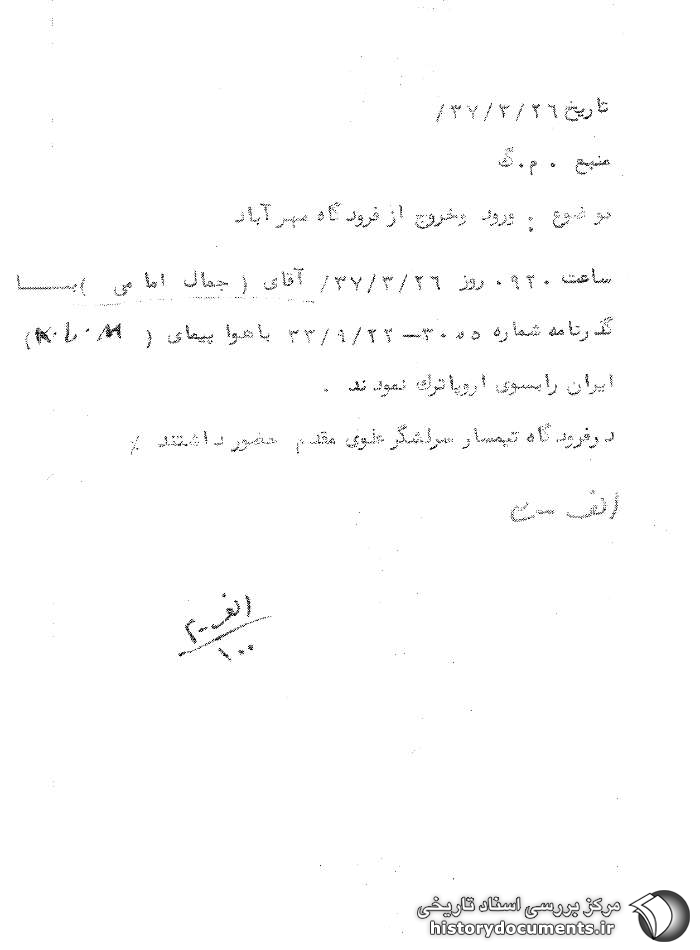 تاریخ ۳۷/۳/۲۶/
منبع . م.گ
موضوع : ورود وخروج از فرودگاه مهرآباد
ساعت ۰۹۲۰ روز ۳۷/۳/۲۶/ آقای ( جمال امامی ) بـــا
گذرنامه شماره ۳۰۰۵۵–۳۳/۹/۲۲ با هواپیمای ( K.L.M )
ایران رابسوی اروپاترك نمودند .
درفرودگاه تیمسار سرلشگر علوی مقدم حضور داشتند ٪
الف –
الف–۲
۱۰۰
مرکز بررسی اسناد تاریخی
historydocuments.ir